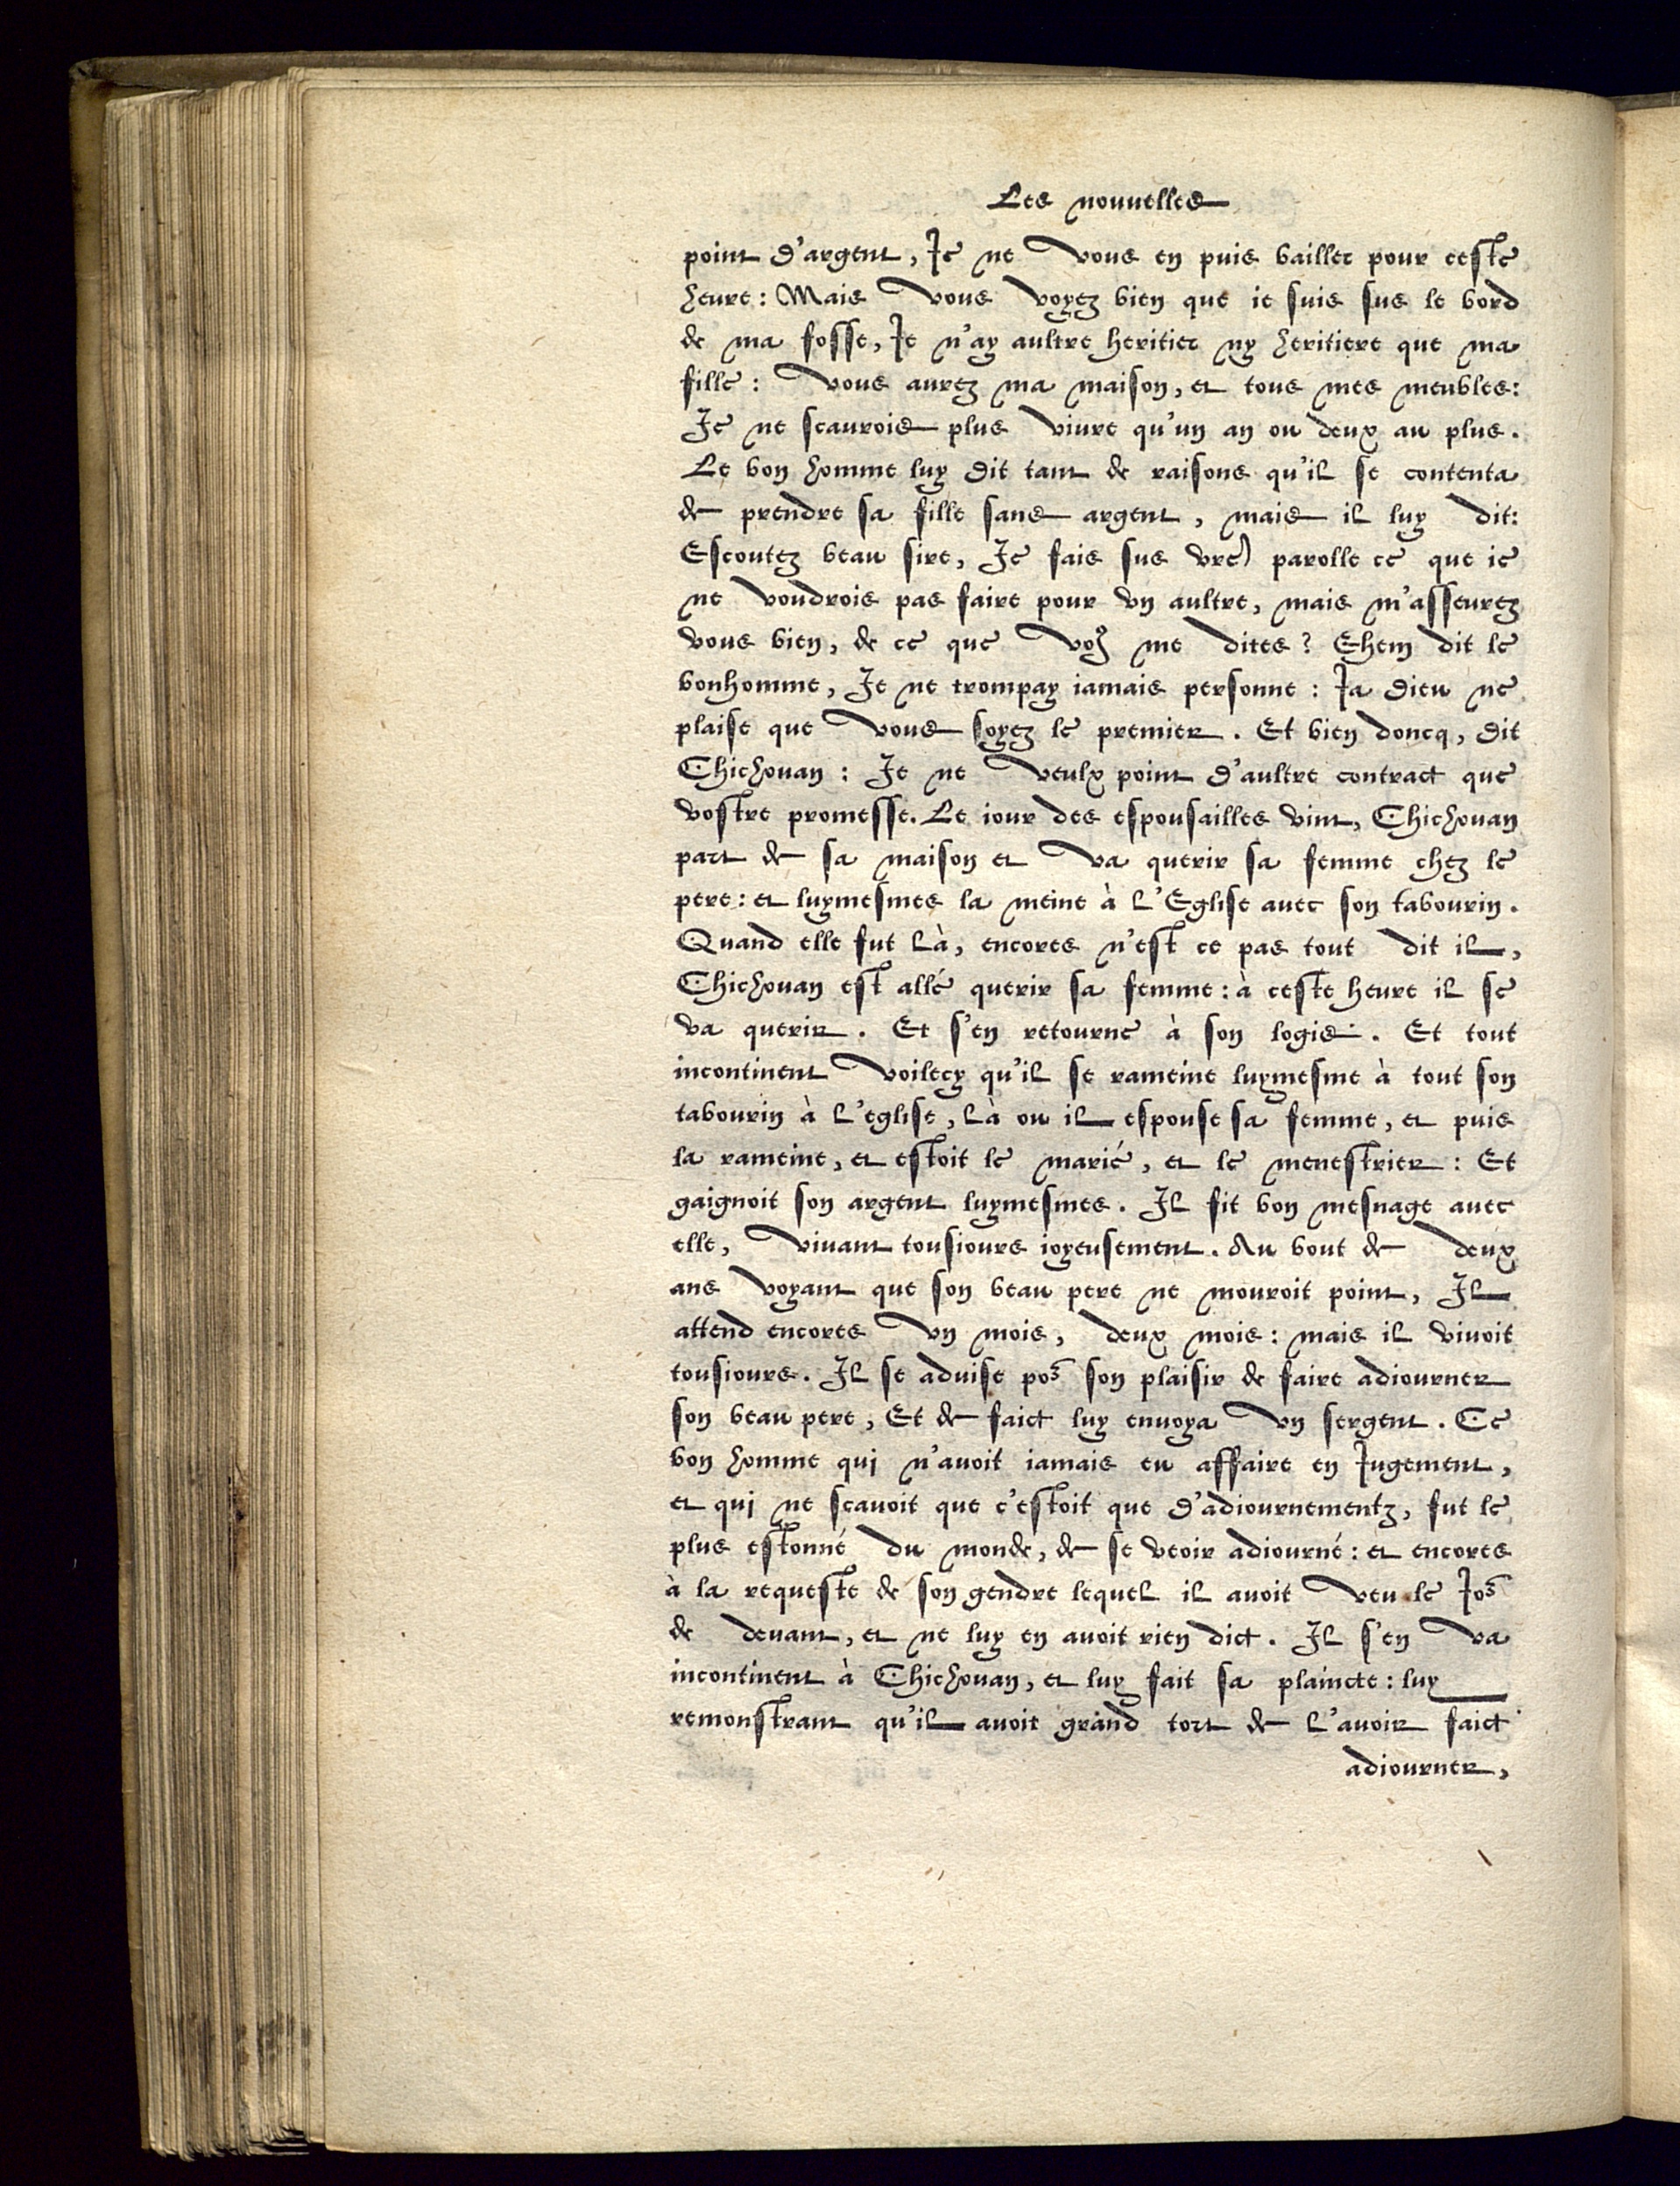 Les nouuelles
point d'argent, Je ne vous en puis bailler pour ceste
heure: Mais vous voyez bien que ie suis sus le bord
de ma fosse, Je n'ay aultre heritier ny heritiere que ma
fille: vous aurez ma maison, et tous mes meubles:
Je ne scaurois plus viure qu'un an ou deux au plus.
Le bon homme luy dit tant de raisons qu'il se contenta
de prendre sa fille sans argent, mais il luy dit:
Escoutez beau sire, Je fais sus vre parolle ce que ie
ne voudrois pas faire pour vn aultre, mais m'asseurez
vous bien, de ce que vo9 me dites? Ehem dit le
bonhomme, Je ne trompay iamais personne: Ja dieu ne
plaise que vous soyez le premier. Et bien doncq, dit
Chichouan: Je ne veulx point d'aultre contract que
vostre promesse. Le iour des espousailles vint, Chichouan
part de sa maison et va querir sa femme chez le
pere: et luymesmes la meine à l'Eglise auec son tabourin.
Quand elle fut là, encores n'est ce pas tout dit il,
Chichouan est allé querir sa femme: à ceste heure il se
va querir. Et s'en retourne à son logis. Et tout
incontinent voilecy qu'il se rameine luymesme à tout son
tabourin à l'eglise, là ou il espouse sa femme, et puis
la rameine, et estoit le marié, et le menestrier: Et
gaignoit son argent luymesmes. Il fit bon mesnage auec
elle, viuant tousiours ioyeusement. Au bout de deux
ans voyant que son beau pere ne mouroit point, Il
attend encores vn mois, deux mois: mais il viuoit
tousiours. Il se aduise po᷑ son plaisir de faire adiourner
son beau pere, Et de faict luy enuoya vn sergent. Ce
bon homme qui n'auoit iamais eu affaire en Jugement,
et qui ne scauoit que c'estoit que d'adiournementz, fut le
plus estonné du monde, de se veoir adiourné: et encores
à la requeste de son gendre lequel il auoit veu le Jo᷑
de deuant, et ne luy en auoit rien dict. Il s'en va
incontinent à Chichouan, et luy fait sa plaincte: luy
remonstrant qu'il auoit grand tort de l'auoir faict
adiourner,